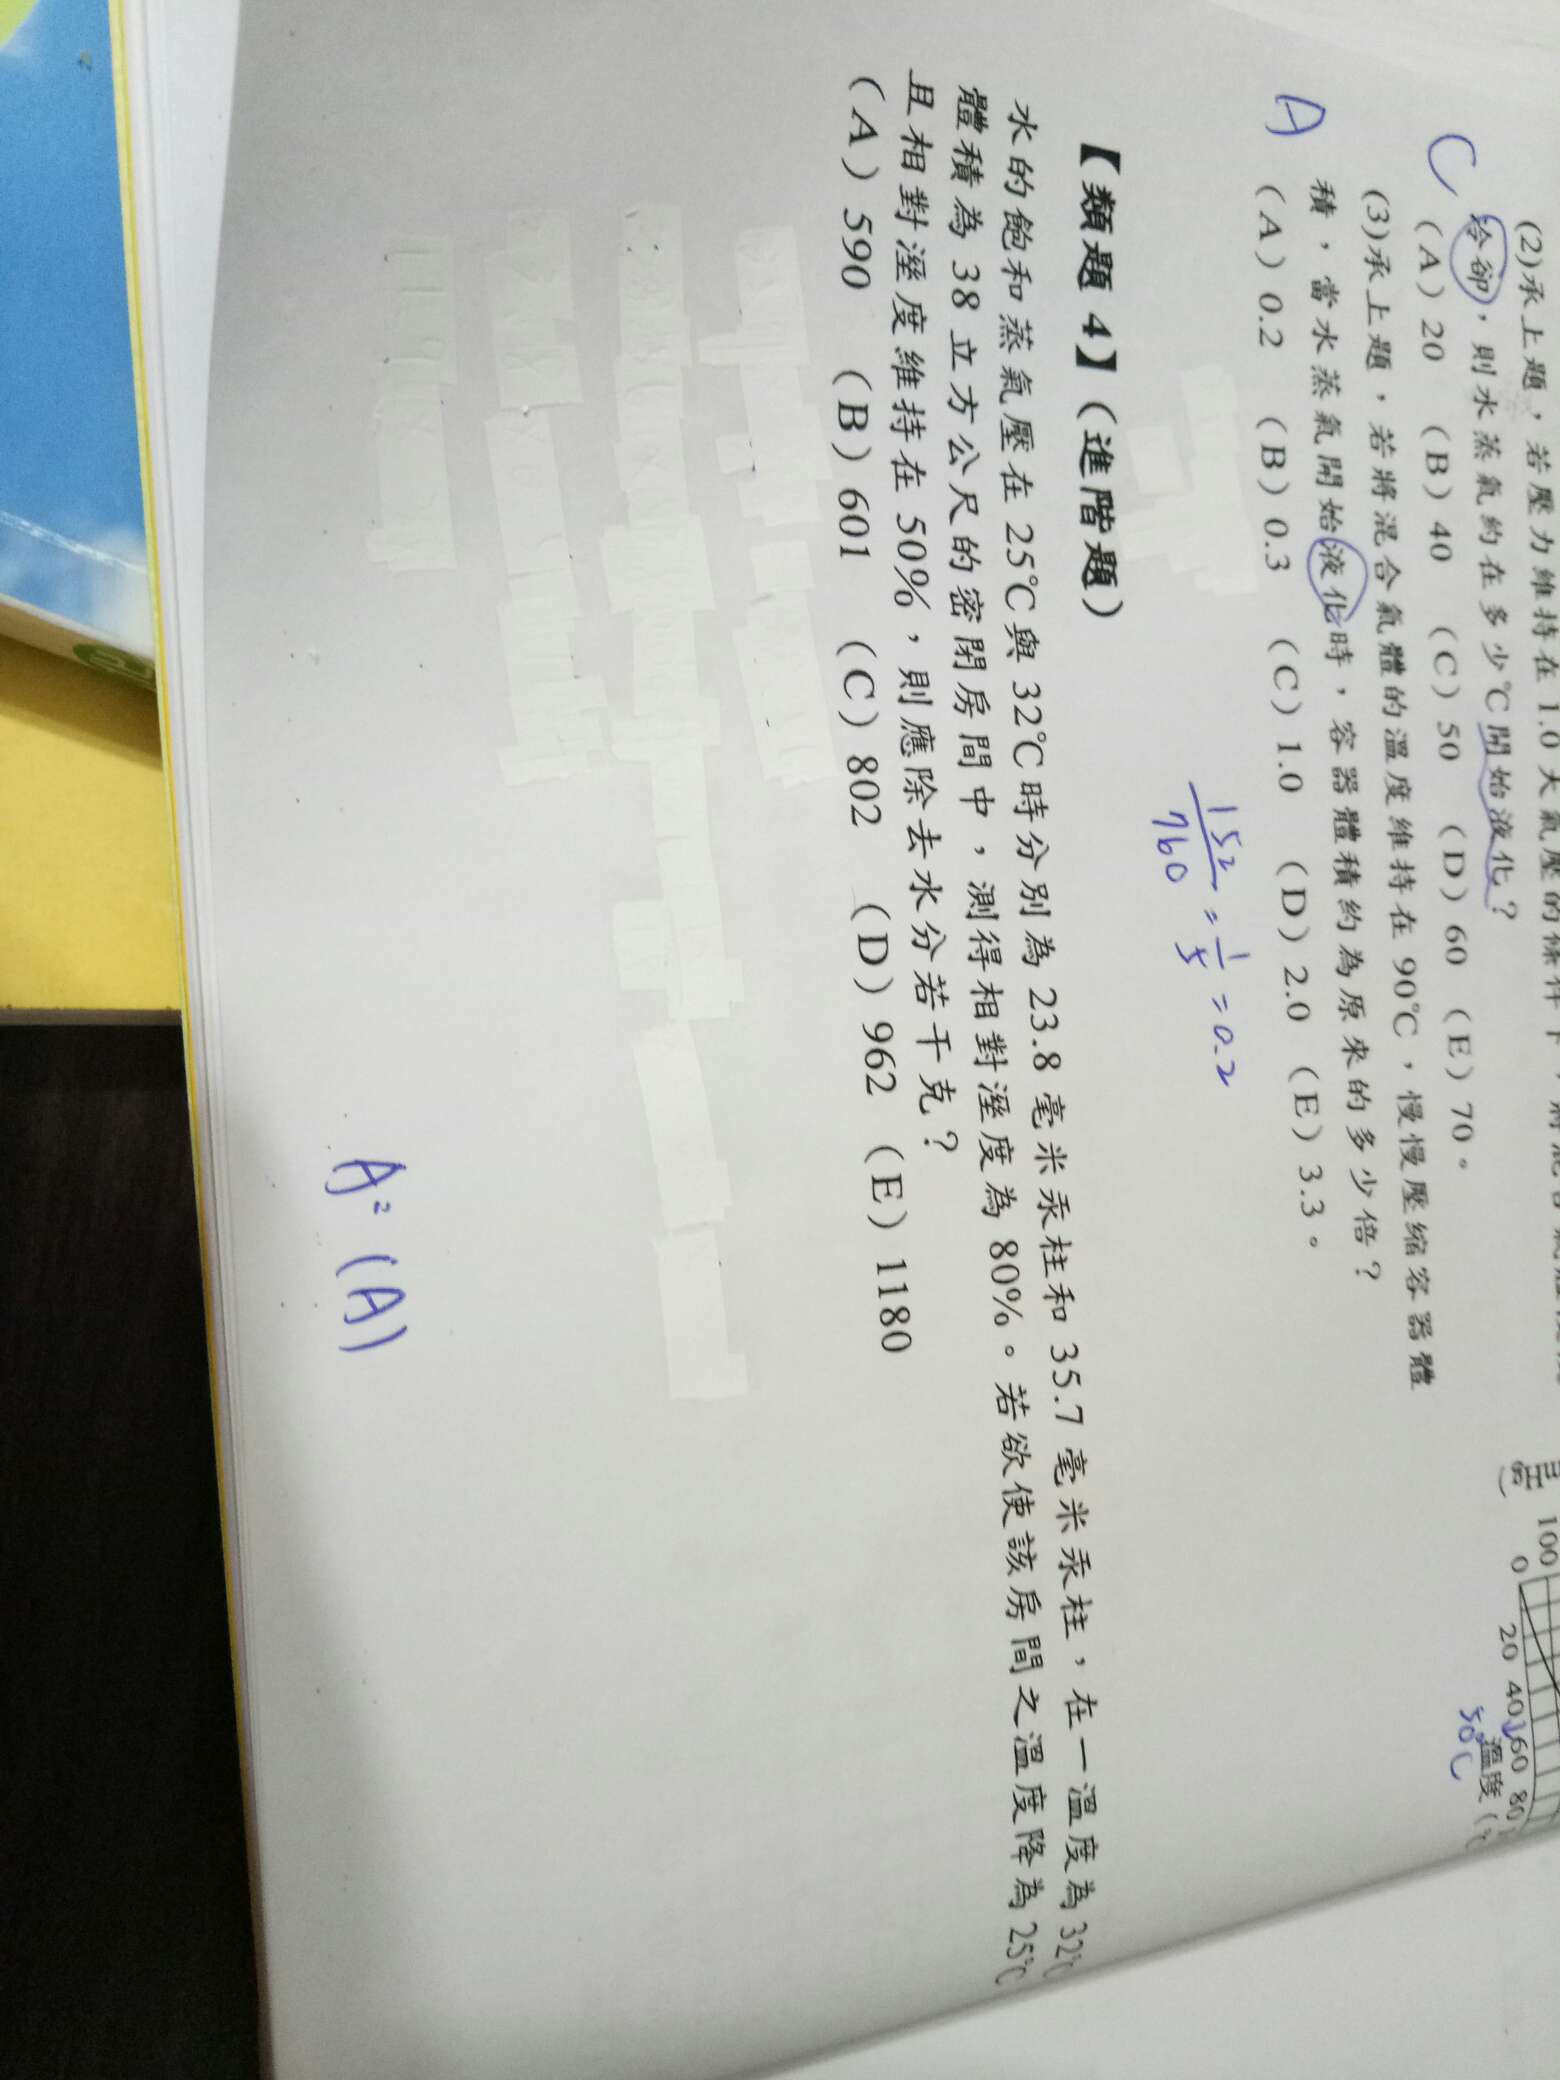 (2)承上題，若壓力維持在 1.0 大氣壓的條件下，將混合氣體
冷卻，則水蒸氣約在多少℃開始液化？
C (A) 20 (B) 40 (C) 50 (D) 60 (E) 70。
(3)承上題，若將混合氣體的溫度維持在 90℃，慢慢壓縮容器體
積，當水蒸氣開始液化時，容器體積約為原來的多少倍？
A (A) 0.2 (B) 0.3 (C) 1.0 (D) 2.0 (E) 3.3。
100
0 20 40 60 80
50℃
溫度(℃
152/760 = 1/5 = 0.2
【類題 4】(進階題)
水的飽和蒸氣壓在 25℃與 32℃時分別為 23.8 毫米汞柱和 35.7 毫米汞柱，在一溫度為 32℃
體積為 38 立方公尺的密閉房間中，測得相對溼度為 80%。若欲使該房間之溫度降為 25℃
且相對溼度維持在 50%，則應除去水分若干克？
(A) 590 (B) 601 (C) 802 (D) 962 (E) 1180
A: (A)